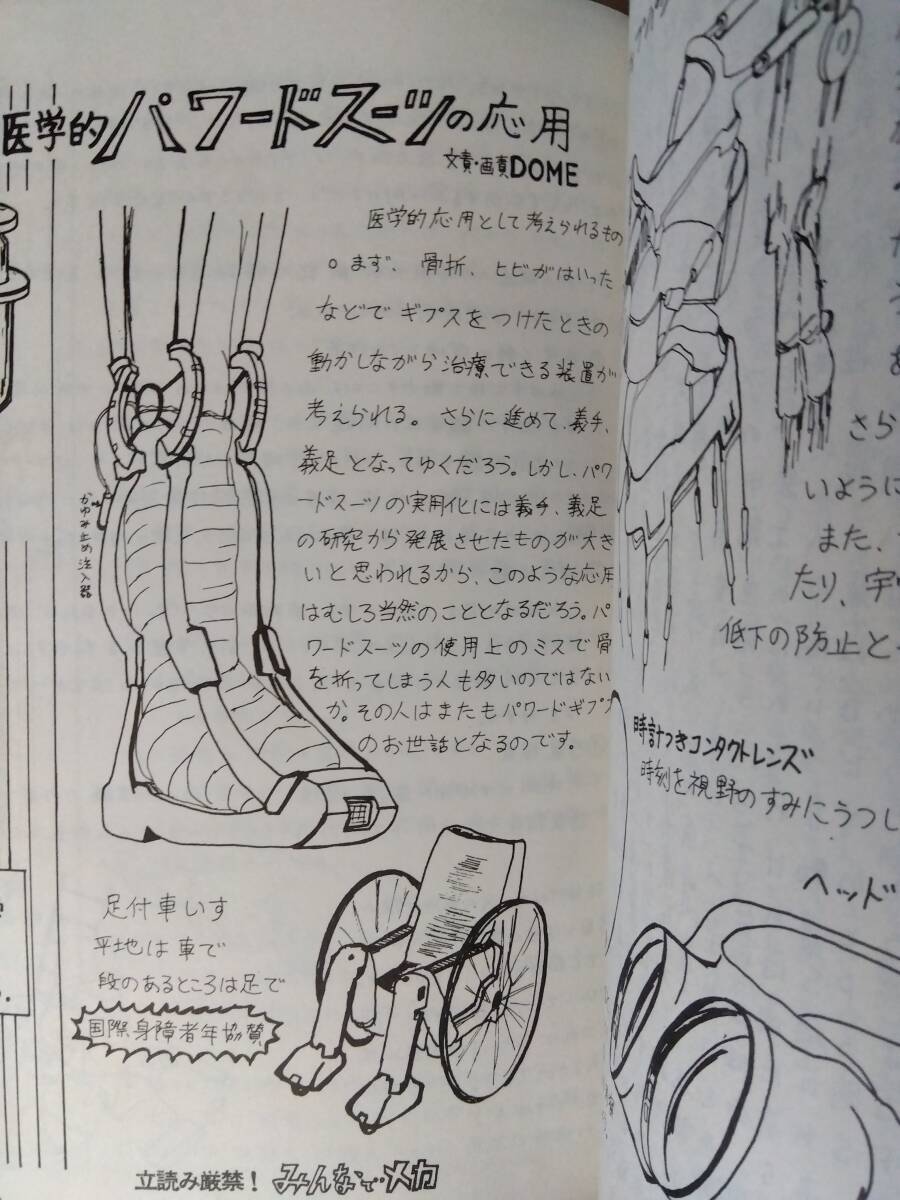 医学的パワードスーツの応用
文責・画責DOME
医学的応用として考えられるもの
。まず、骨折、ヒビがはいった
などでギプスをつけたときの
動かしながら治療できる装置が
考えられる。さらに進めて、義手、
義足となってゆくだろう。しかし、パワ
ードスーツの実用化には義手、義足
の研究から発展させたものが大き
いと思われるから、このような応用
はむしろ当然のこととなるだろう。パ
ワードスーツの使用上のミスで骨
を折ってしまう人も多いのではない
か。その人はまたもパワードギプス
のお世話となるのです。
かゆみ止め注入器
足付車いす
平地は車で
段のあるところは足で
国際身障者年協賛
立読み厳禁!みんなでメカ
さら
いように
また、
たり、宇
低下の防止と
時計つきコンタクトレンズ
時刻を視野のすみにうつし
ヘッド